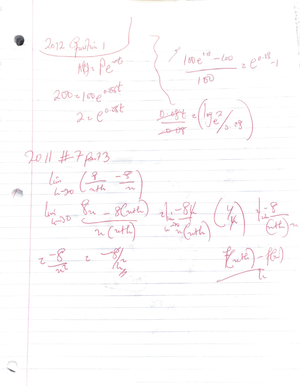 2012 Question 1
= Pe^rt
200 = 100e^0.08t
2 = e^0.08t
(100e^0.08 - 100)/100 = e^0.08 - 1
0.08t/0.08 = (log_e 2/0.08)
2011 #7 part 3
lim h→0 (8/x+h - 8/x)
lim h→0 8x - 8(x+h) / x(x+h) = lim h→0 -8h / x(x+h) (1/h)
= -8/x² = -8/x²
f(x+h) - f(x) / h